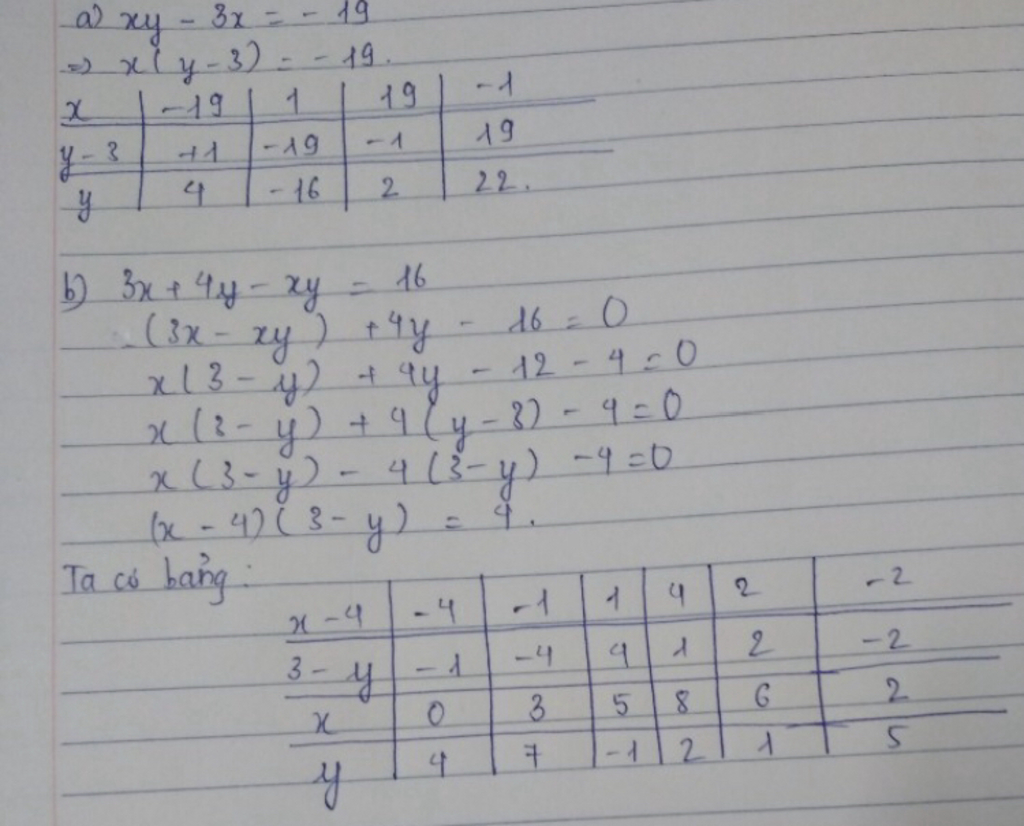 a) xy - 3x = - 19
=> x(y-3) = - 19.
x | -19 | 1 | 19 | -1
y-3 | +1 | -19 | -1 | 19
y | 4 | -16 | 2 | 22.
b) 3x + 4y - xy = 16
(3x - xy) + 4y - 16 = 0
x(3 - y) + 4y - 12 - 4 = 0
x(3 - y) + 4(y - 3) - 4 = 0
x(3 - y) - 4(3 - y) - 4 = 0
(x - 4)(3 - y) = 4.
Ta có bảng:
x - 4 | -4 | -1 | 1 | 4 | 2 | -2
3 - y | -1 | -4 | 4 | 1 | 2 | -2
x | 0 | 3 | 5 | 8 | 6 | 2
y | 4 | 7 | -1 | 2 | 1 | 5